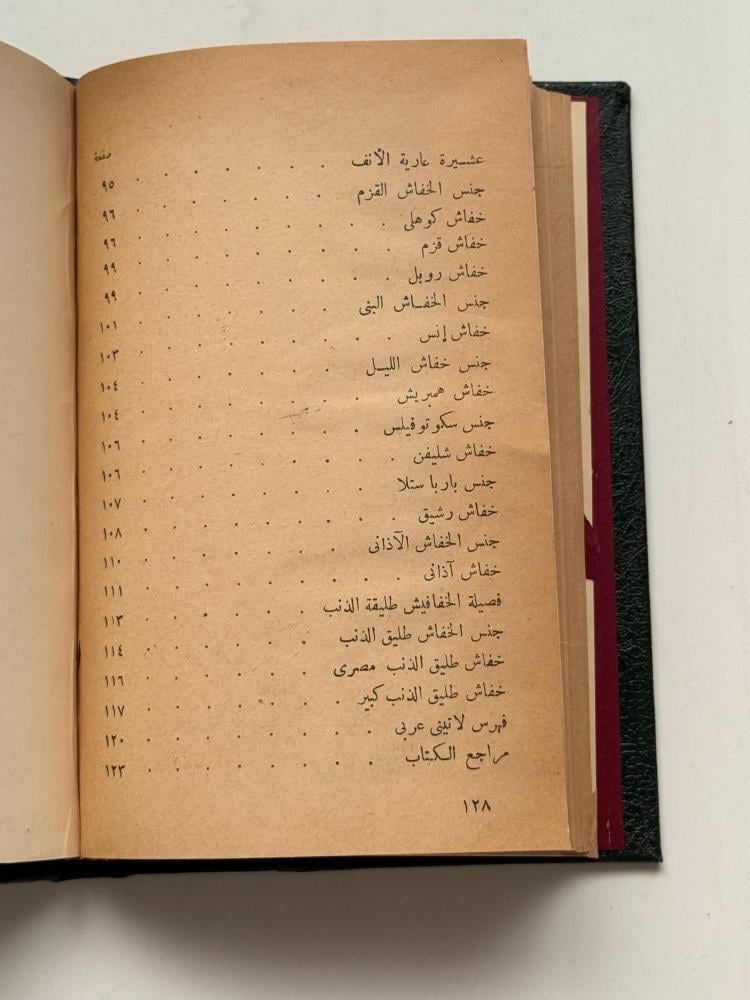 صفحة
عشيرة عارية الأنف . . . . . . . ٩٥
جنس الخفاش القزم . . . . . . . ٩٦
خفاش كوهلى . . . . . . . . . ٩٦
خفاش قزم . . . . . . . . . ٩٩
خفاش روبل . . . . . . . . . ٩٩
جنس الخفاش البنى . . . . . . . ١٠١
خفاش إنس . . . . . . . . . ١٠٣
جنس خفاش الليل . . . . . . . ١٠٤
خفاش همبريش . . . . . . . . ١٠٤
جنس سكوتوفيلس . . . . . . . . ١٠٦
خفاش شليفن . . . . . . . . . ١٠٦
جنس باربا ستلا . . . . . . . . ١٠٧
خفاش رشيق . . . . . . . . . ١٠٨
جنس الخفاش الآذانى . . . . . . . ١١٠
خفاش آذانى . . . . . . . . . ١١١
فصيلة الخفافيش طليقة الذنب . . . . . . ١١٣
جنس الخفاش طليق الذنب . . . . . . ١١٤
خفاش طليق الذنب مصرى . . . . . . ١١٦
خفاش طليق الذنب كبير . . . . . . . ١١٧
فهرس لاتينى عربى . . . . . . . . ١٢٠
مراجع الكتاب . . . . . . . . ١٢٣
١٢٨